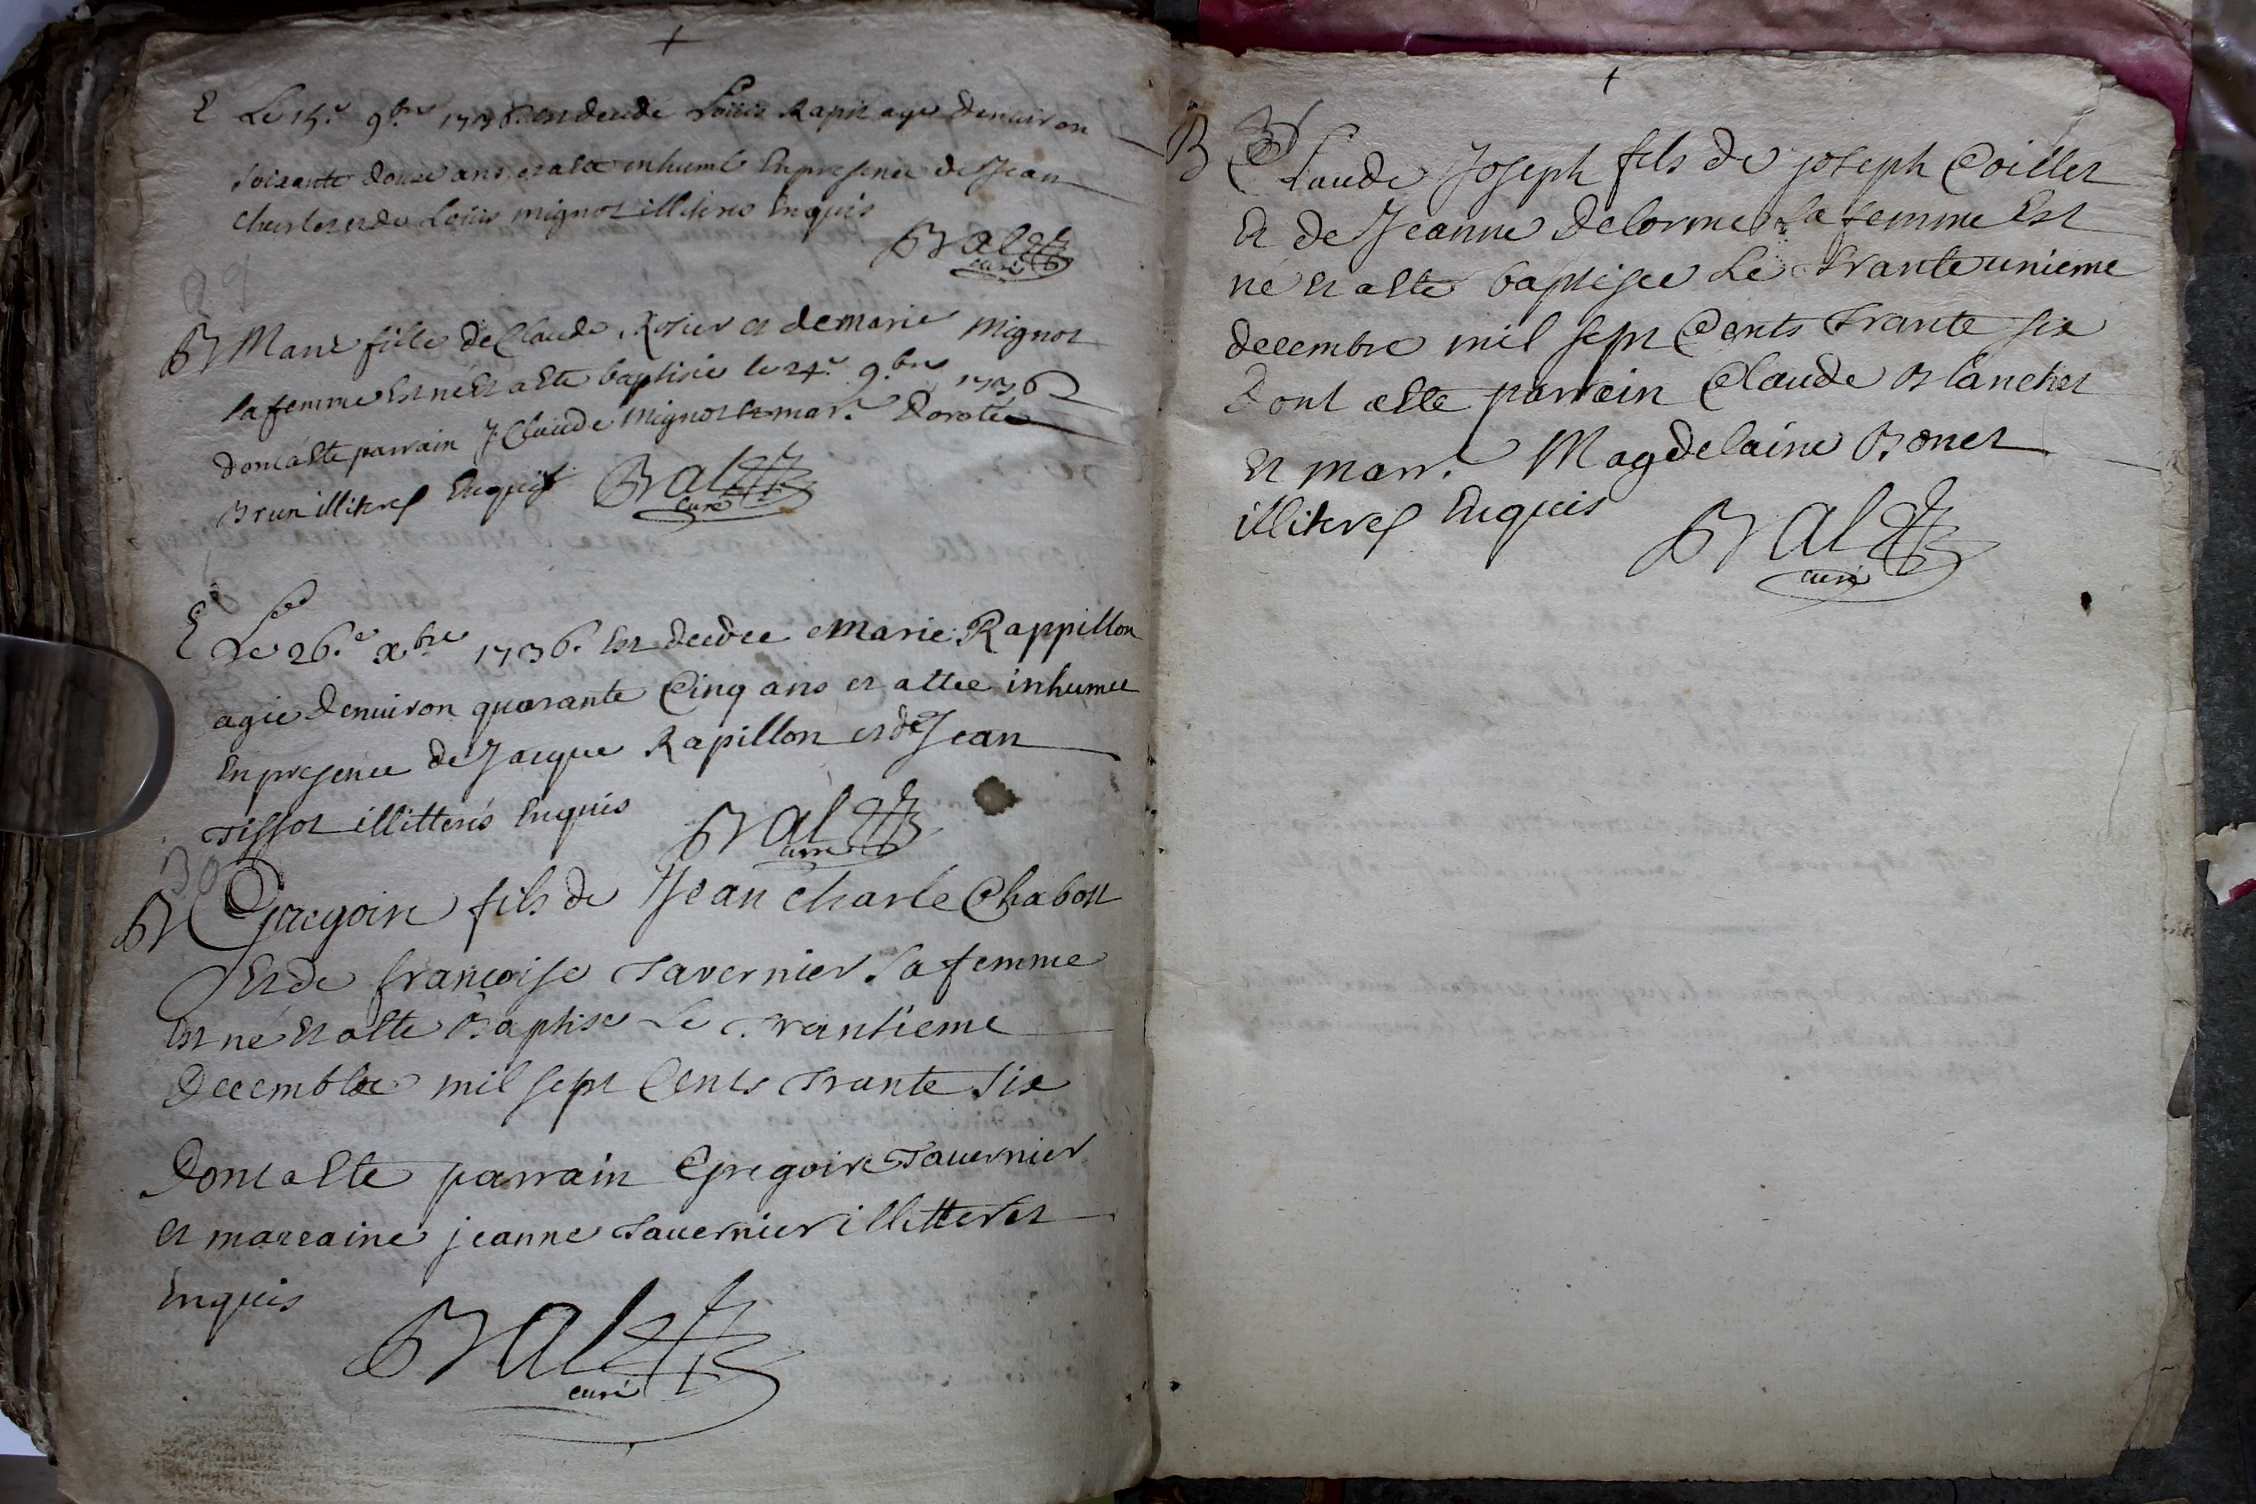 +
E Le 15.e 9.bre 1736. est decede Loüis Rapit agé denuiron
soixante douze ans et a été inhumé En presence de Jean
et de Loüis mignot illiteres Enquis
Bral
curé
29
B Marie fille de Claude Rosier et de marie Mignot
sa femme Est né Et a Eté baptisée le 24.e 9.bre 1736
dont a Eté parrain J Claude Mignot Et mar.e Dorotée
Brun illiteres Enquis
Bral
curé
E Le 26.e xbre 1736. Est decedee Marie Rappillon
agée denuiron quarante Cinq ans et a étée inhumée
En presence de Jacque Rapillon et de Jean
Tissot illitterés Enquis
Bral
curé
30
B Gregoire fils de Jean charle Chabost
Et de françoise Tavernier Sa femme
Est né Et a Eté Baptisé Le Trantieme
Decembre mil sept Cents Trante Six
Dont a Eté parrain Gregoire Tauernier
et marraine jeanne Tauernier illitteres
Enquis
Bral
curé
+
31
B Claude Joseph fils de joseph Coillet
Et de Jeanne Delorme Sa femme Est
né Et a Eté baptisée Le Tranteunieme
decembre mil sept Cents Trante six
Dont a Eté parrain Claude Blanchet
Et marr.e Magdelaine Bonet
illiteres Enquis
Bral
curé